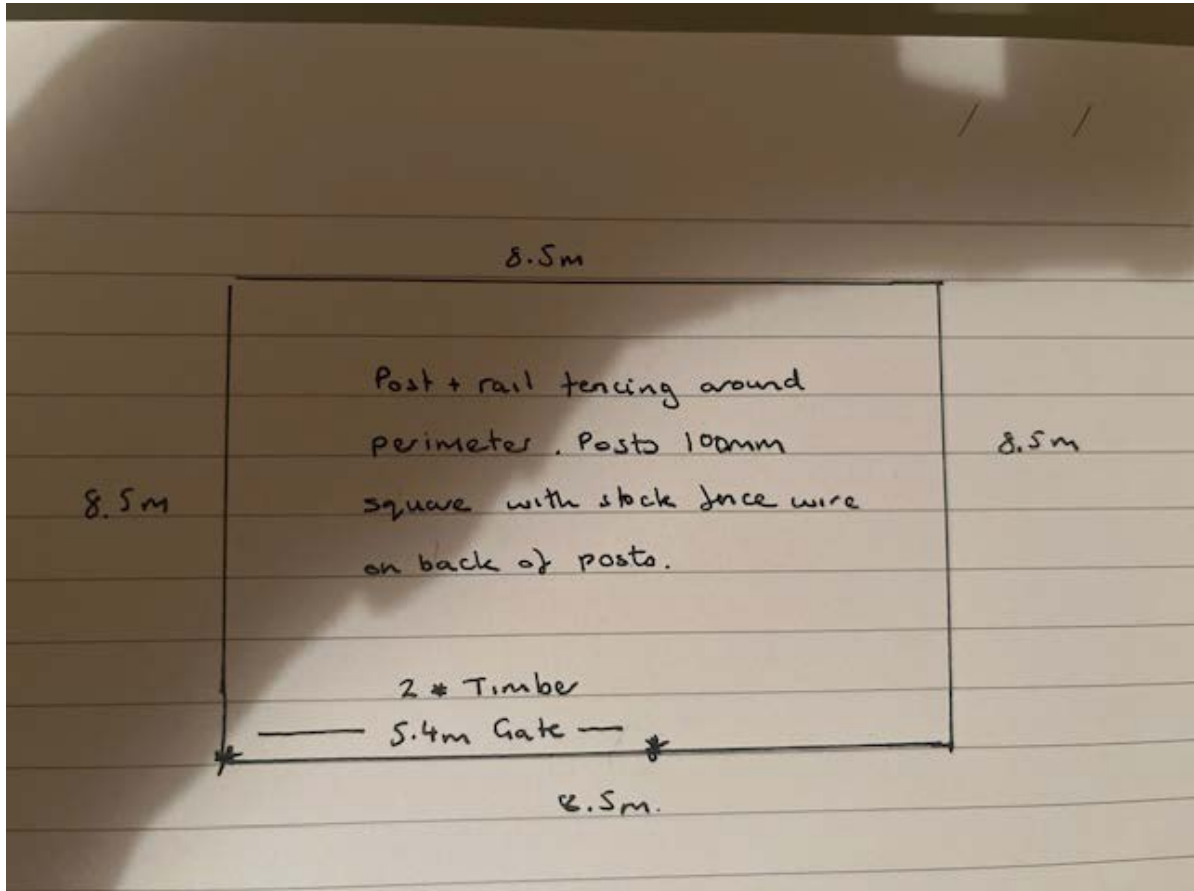 8.5m
Post + rail fencing around
perimeter. Posts 100mm
8.5m
square with stock fence wire
8.5m
on back of posts.
2 * Timber
5.4m Gate
8.5m.